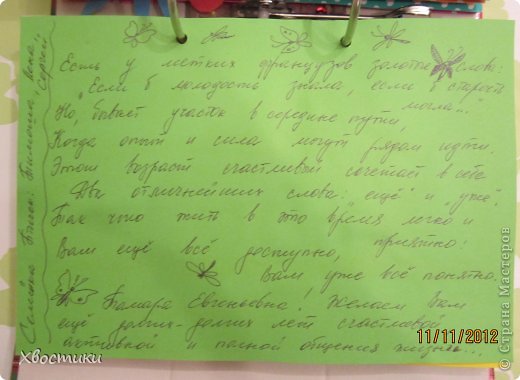 Есть у метких французов золотые слова:
"Если б молодость знала, если б старость могла..."
Но, бывает участок в середине пути,
Когда опыт и сила могут рядом идти.
Этот возраст счастливый сочетает в себе
Два отличнейших слова: "ещё" и "уже".
Так что жить в это время легко и приятно:
Вам ещё всё доступно,
Вам, уже всё понятно.
Тамара Евгеньевна! Желаем Вам
ещё долгих-долгих лет счастливой
активной и полной общения жизни...
Семёнка
Сергей
11/11/2012
Хвостики
© Страна Мастеров